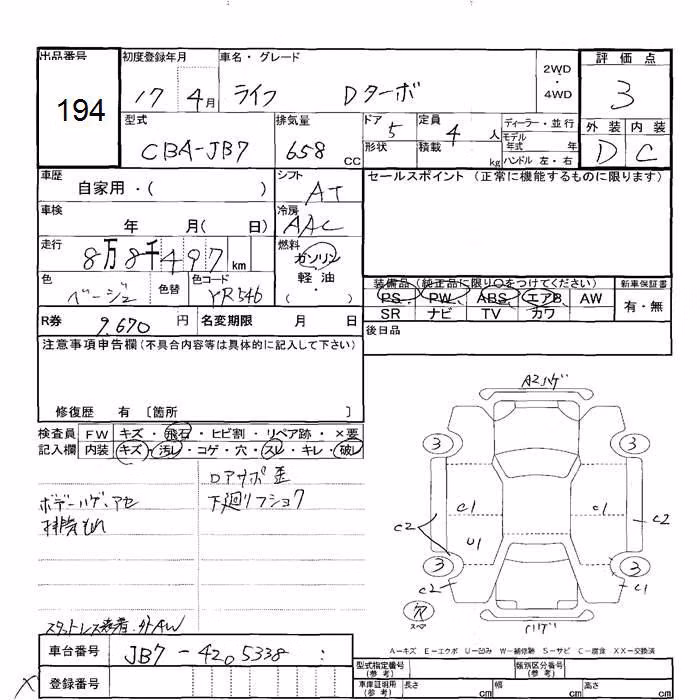 出品番号 初度登録年月 車名・グレード 評価点
194 17 4月 ライフ Dターボ 2WD・4WD 3
型式 排気量 ドア 定員 ディーラー・並行 外装 内装
CBA-JB7 658 CC 5 4人 モデル年式 年 D C
形状 積載 kg ハンドル 左・右
車歴 シフト セールスポイント (正常に機能するものに限ります)
自家用・( ) AT
車検 冷房
年 月( 日) AAC
走行 燃料
8万8千497km ガソリン
軽油
・
( )
色 色替 色コード
ベージュ YR546
装備品(純正品に限り○をつけてください) 新車保証書
PS PW ABS エアB AW 有・無
SR ナビ TV カワ
R券 9,670円 名変期限 月 日
後日品
注意事項申告欄(不具合内容等は具体的に記入して下さい)
修復歴 有 〔箇所 〕
検査員 FW キズ・飛石・ヒビ割・リペア跡・×要
記入欄 内装 キズ・汚レ・コゲ・穴・スレ・キレ・破レ
ロアサポ歪
ボデーハゲ、アセ 下廻リフショク
排気もれ
A2ハゲ
3 3
C1 C1
C2 C2
U1
3 3
C2 C1
穴
スペア
ハゲ
A-キズ E-エクボ U-凹み W-補修跡 S-サビ C-腐食 XX-交換済
スタットレス装着.外AW
車台番号 JB7-4205338
型式指定番号(参考) 類別区分番号(参考)
登録番号
車庫証明用(参考) 長さ cm 幅 cm 高さ cm